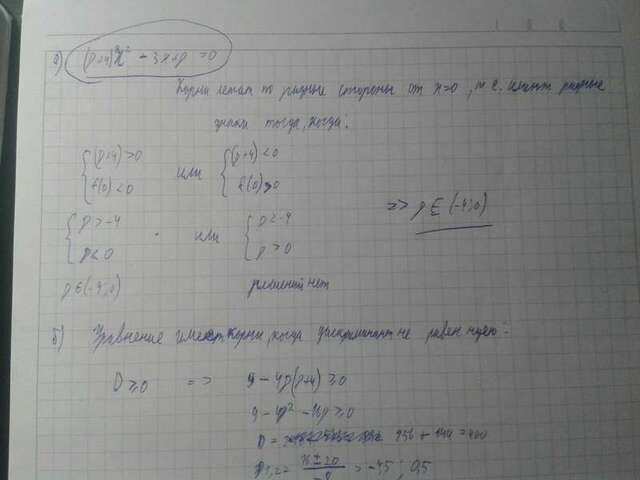 а) (p+4)x² - 3x+p = 0
Корни лежат по разные стороны от x=0, т.е. имеют разные
знаки тогда, когда:
{(p+4) > 0 или {(p+4) < 0
f(0) < 0 f(0) > 0
{p > -4 или {p < -4
p < 0 p > 0
=> p ∈ (-4;0)
p ∈ (-4;0) решений нет
б) Уравнение имеет корни, когда дискриминант не равен нулю:
D ≥ 0 => 9 - 4p(p+4) ≥ 0
9 - 4p² - 16p ≥ 0
D = 256 + 144 = 400
p1,2 = (16 ± 20)/-8 = -4,5; 0,5